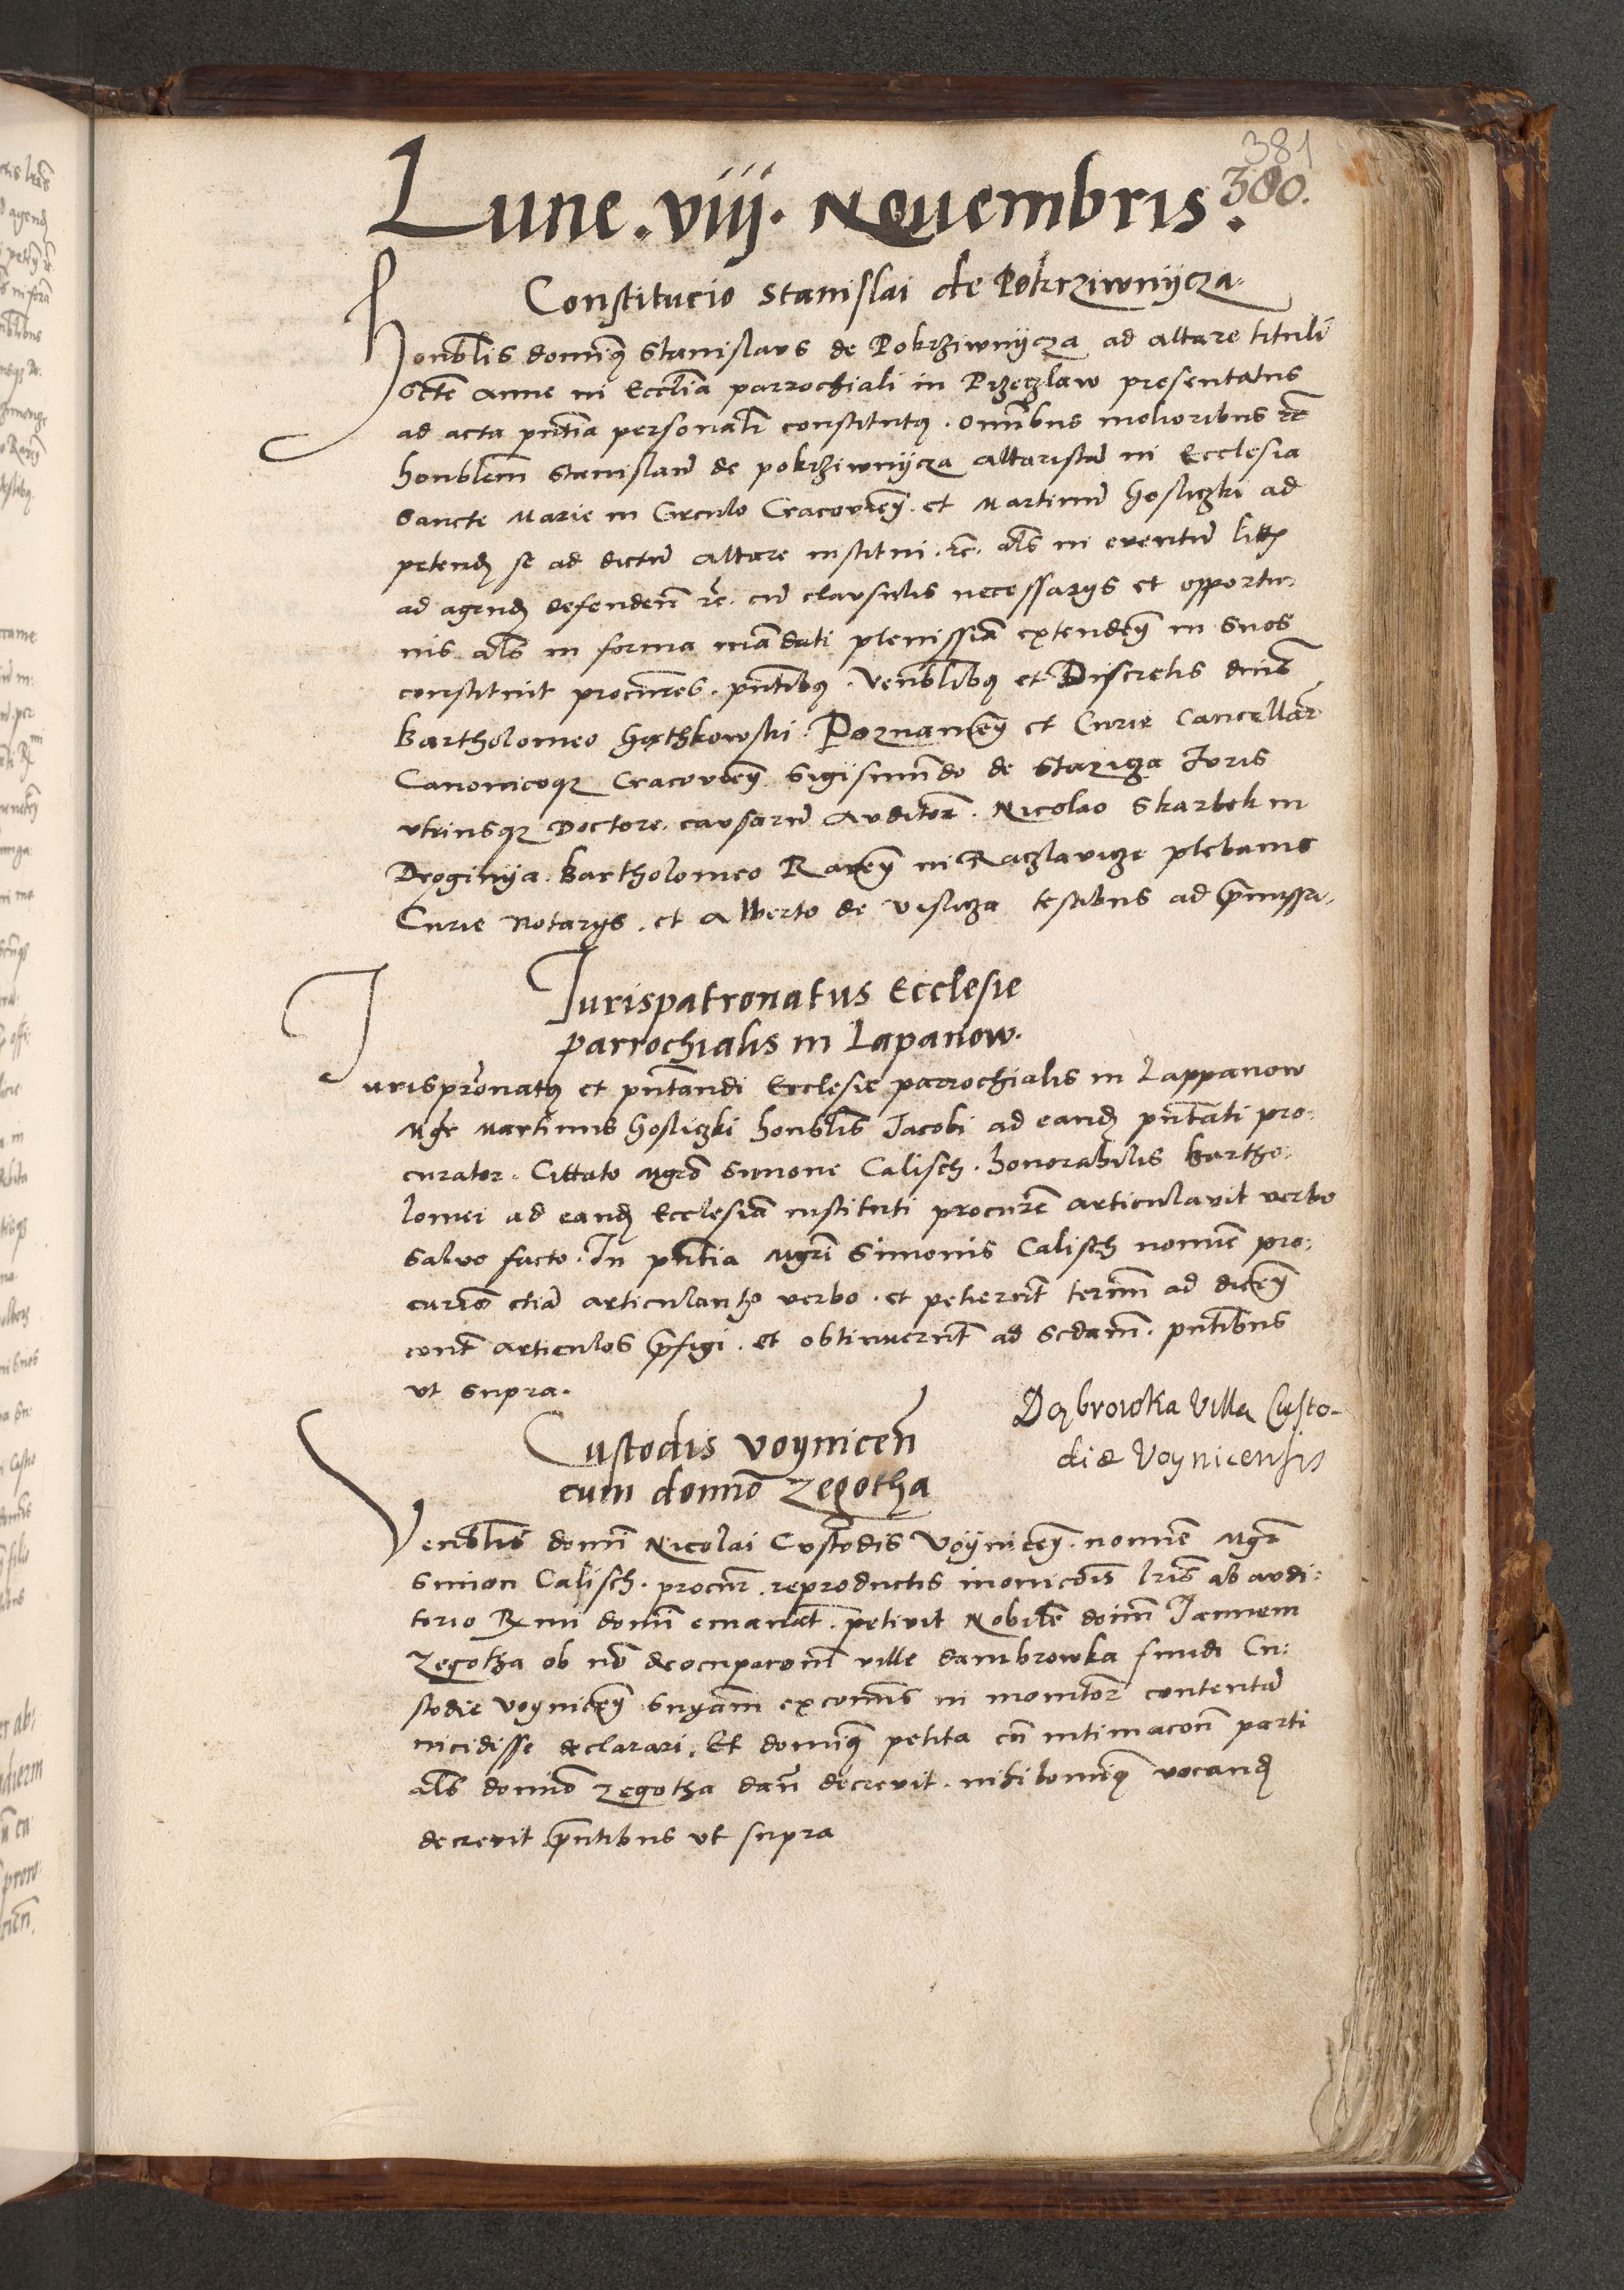 381
380.
Lune . viij . Nouembris .
Constitucio Stanislai de Pokrziwnycza
Honblis dominus Stanislaus de Pokrziwnycza ad altare tituli
Scte Anne in Ecclia parrochiali in Przeczlaw presentatus
ad acta pntia personalr constitutus . omnibus melioribus etc
honblem Stanislaum de pokrziwnycza altaristam in Ecclesia
Sancte Marie in Circulo Cracovien . et Martinum Hosliczki ad
petend se ad dictum altare institui . etc . als in eventum litis
ad agend defenden etc . cum clausulis necessarys et opportu-
nis als in forma mandati plenissima extenden in suos
constituit procures . pntibus . Venblibus et Discretis dnis
Bartholomeo Poznanien et Curie Cancellar
Canonicoque Cracovien Sigismundo de Stazicza Iuris
vtriusque Doctore . causarum Auditore . Nicolao Skarbek in
Droginya . Bartholomeo in Raczlavicze plebanis
Curie Notarys . et Alberto de Vislicza testibus ad premissa .
Jurispatronatus Ecclesie
parrochialis in Lapanow .
Jurispronatus et pntandi Ecclesie parrochialis in Lappanow
Mgr Martinus Hosliczki honblis Jacobi ad eand pntati pro-
curator . Cittato Mgro Simone Calisch . honorabilis Bartho-
lomei ad eand Ecclesiam instituti procure articulavit verbo
salvo facto . In pntia Mgri Simonis Calisch nomine pro-
curio etiam articulantis verbo . et petierunt terminum ad dicen
cont articulos prefigi . et obtinuerunt ad scdam . pntibus
vt supra .
Dąbrowka Villa Custo-
diæ Voynicensis
Custodis Voynicen
cum domino Zegotha
Venblis domini Nicolai Custodis Voynicen . nomine Mgr
Simon Calisch . procur . reproductis monicois lris ab audi-
torio Rmi domini emanat . petivit Nobilem doim Joannem
Zegotha ob non deocupacom ville dambrowka fundi Cu-
stodie Voynicen sniam excomis in monitor contentam
incidisse declarari . Et dominus petita cum intimacon parti
als domino Zegotha dan decrevit . nihilominus vocand
decrevit pntibus vt supra